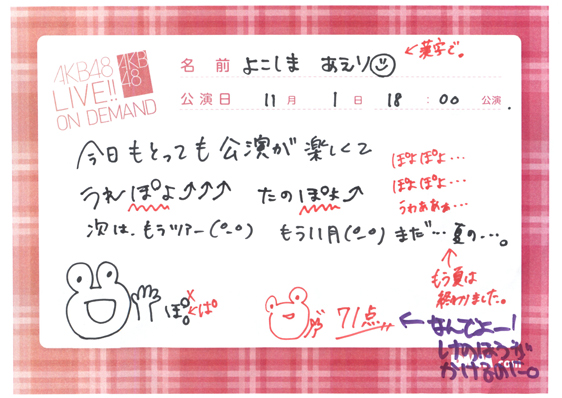 AKB48
LIVE!!
ON DEMAND
AKB
48
名前 よこしま あえり
←漢字で。
公演日 11月 1日 18:00 公演.
今日もとっても公演が楽しくて
うれぽよ↑↑↑ たのぽよ↑
ぽよぽよ…
ぽよぽよ…
うわあぁぁ…
次は、もうツアー(°_°) もう11月(°_°) まだ…夏の…。
↑
もう夏は
終わりました。
ぽ。
×
←ぱ
71点
←なんでよー!